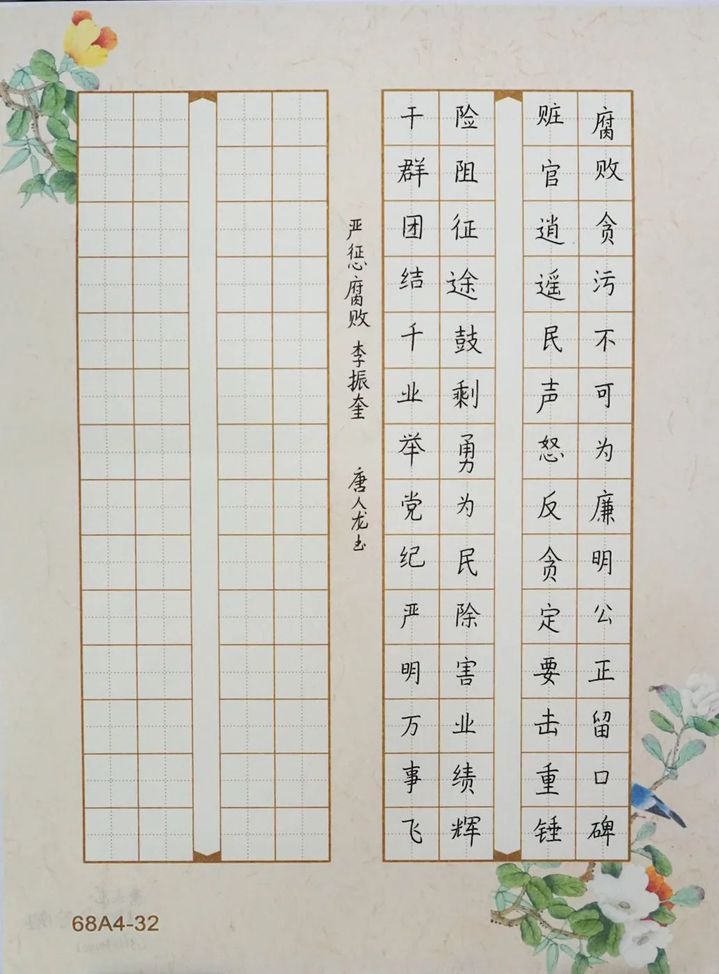 腐败贪污不可为廉明公正留口碑
赃官逍遥民声怒反贪定要击重锤
险阻征途鼓剩勇为民除害业绩辉
干群团结千业举党纪严明万事飞
严惩腐败 李振奎 唐人龙书
68A4-32